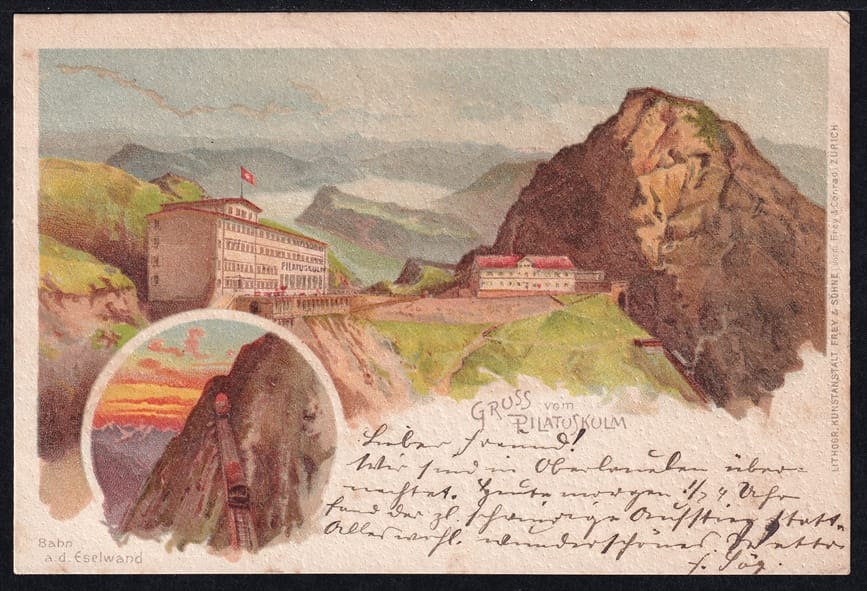 PILATUSKULM
GRUSS vom
PILATUSKULM
Lieber Freund!
Wir sind in Oberlauelen über-
nachtet. Heute morgen 1/2 4 Uhr
fand der
Aufstieg statt.
Alles wohl. wunderschönes Wetter
Bahn
a. d. Eselwand
LITHOGR. KUNSTANSTALT FREY & SÖHNE, vorm. Frey & Conrad, ZÜRICH